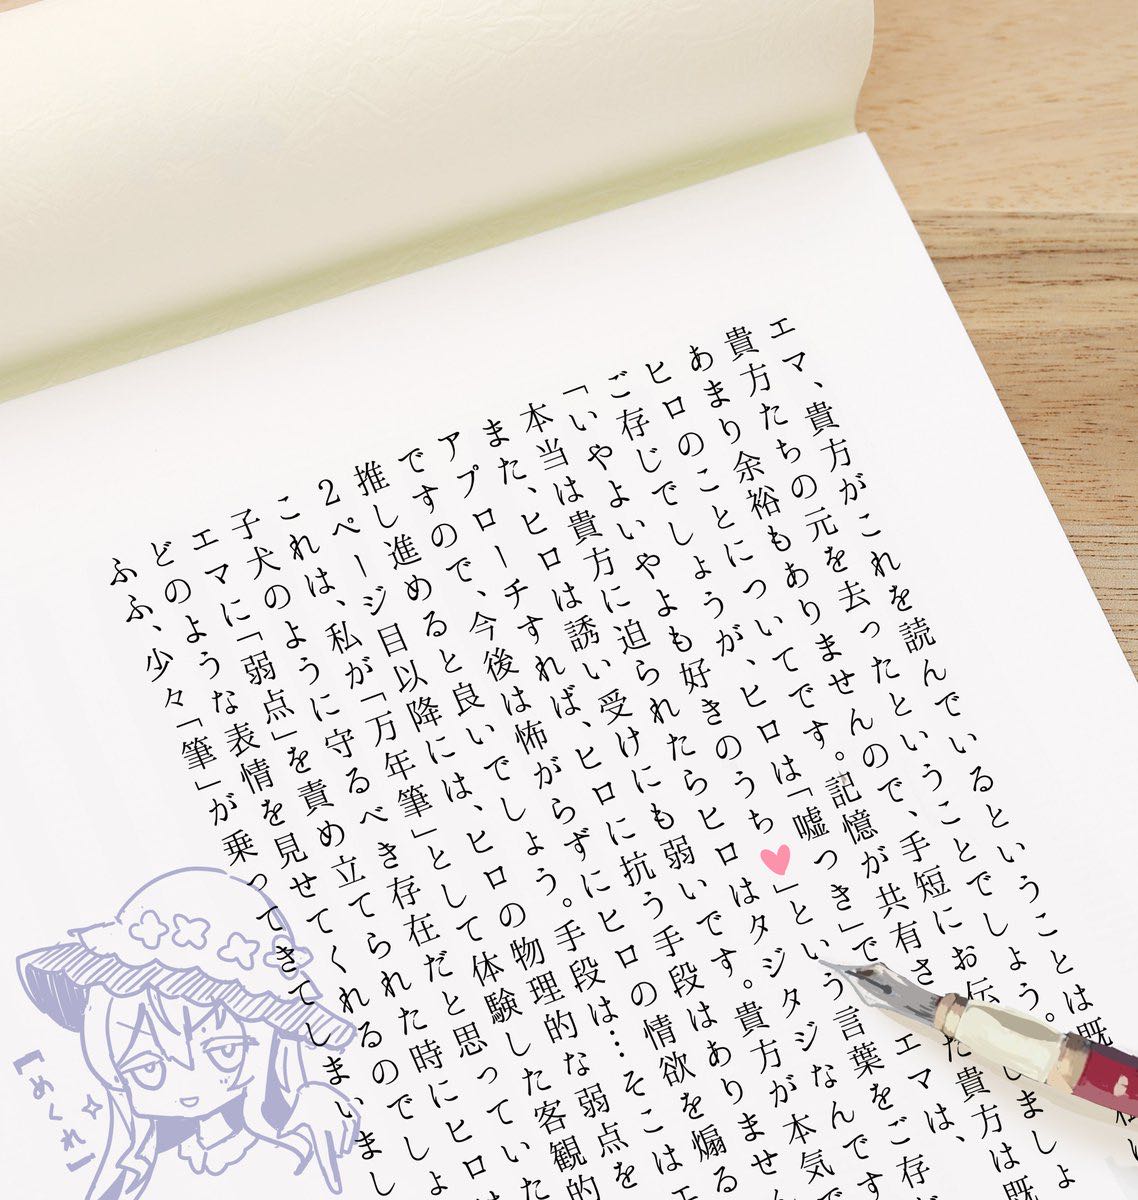 エマ、貴方がこれを読んでいるということは既
貴方たちの元を去ったということでしょう。
あまり余裕もありませんので、手短にお伝しましょ
ヒロのことについてです。記憶が共有された貴方は既
ご存じでしょうが、ヒロは「嘘つき」で エマは、
「いやよいやよも好きのうち♥」という言葉をご存
本当は貴方に迫られたらヒロはタジタジなんです
また、ヒロは誘い受けにも弱いです。貴方が本気で
アプローチすれば、ヒロに抗う手段はありません
ですので、今後は怖がらずにヒロの情欲を煽る
推し進めると良いでしょう。手段は…そこはエ
2ページ目以降には、ヒロの物理的な弱点を
これは、私が「万年筆」として体験した客観的
子犬のように守るべき存在だと思っていた
エマに「弱点」を責め立てられた時にヒロは
どのような表情を見せてくれるのでしょ
ふふ、少々「筆」が乗ってきてしまいまし
[めくれ]